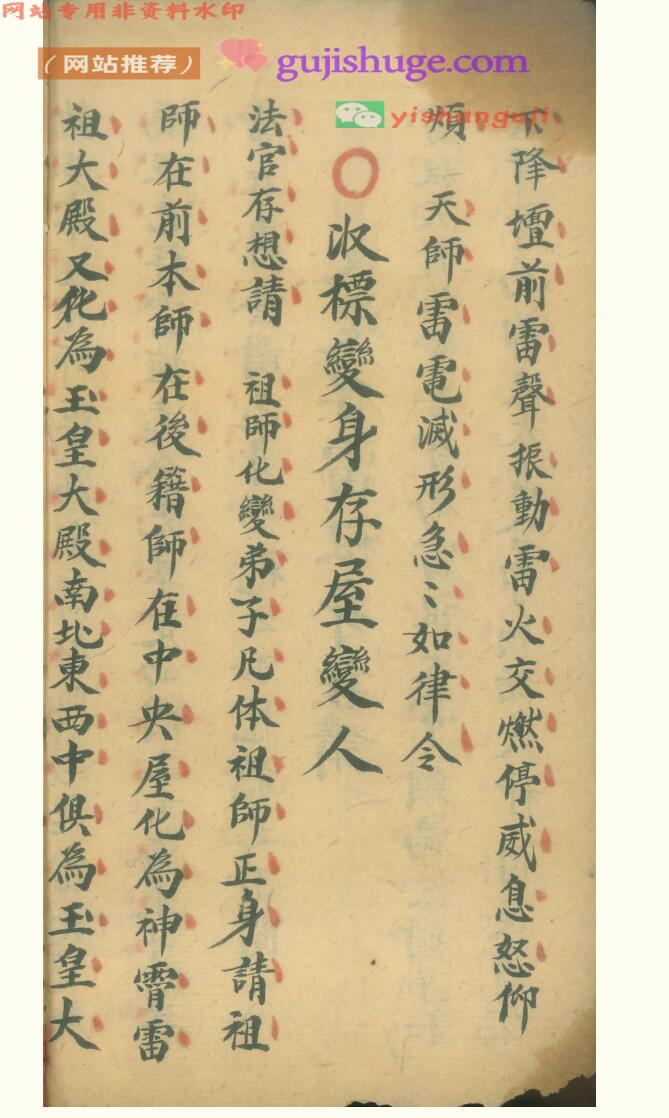 网站专用非资料水印
（网站推荐） gujishuge.com
yishanguji
下降壇前雷聲振動雷火交燃停威息怒仰
煩 天師雷電滅形急〻如律令
〇 収標變身存屋變人
法官存想請 祖師化變弟子凡体祖師正身請祖
師在前本師在後籍師在中央屋化為神霄雷
祖大殿又化為玉皇大殿南北東西中俱為玉皇大